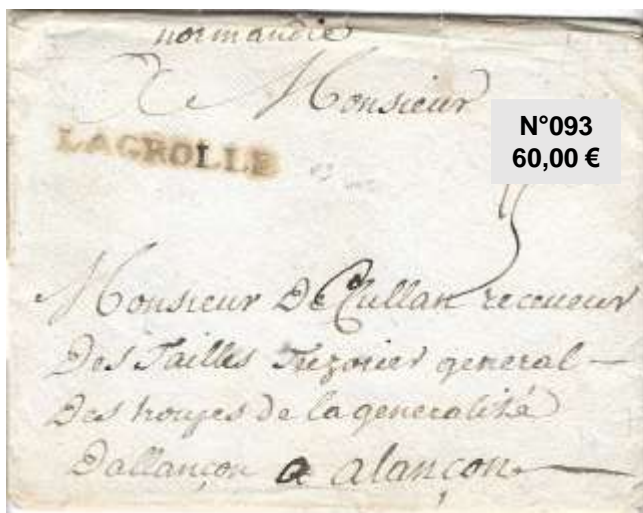 normandie
A Monsieur
LAGROLLE
N°093
60,00 €
Monsieur De Cullan receveur
Des Tailles Trezorier general
Des troupes de la generalité
Dallançon a alançon